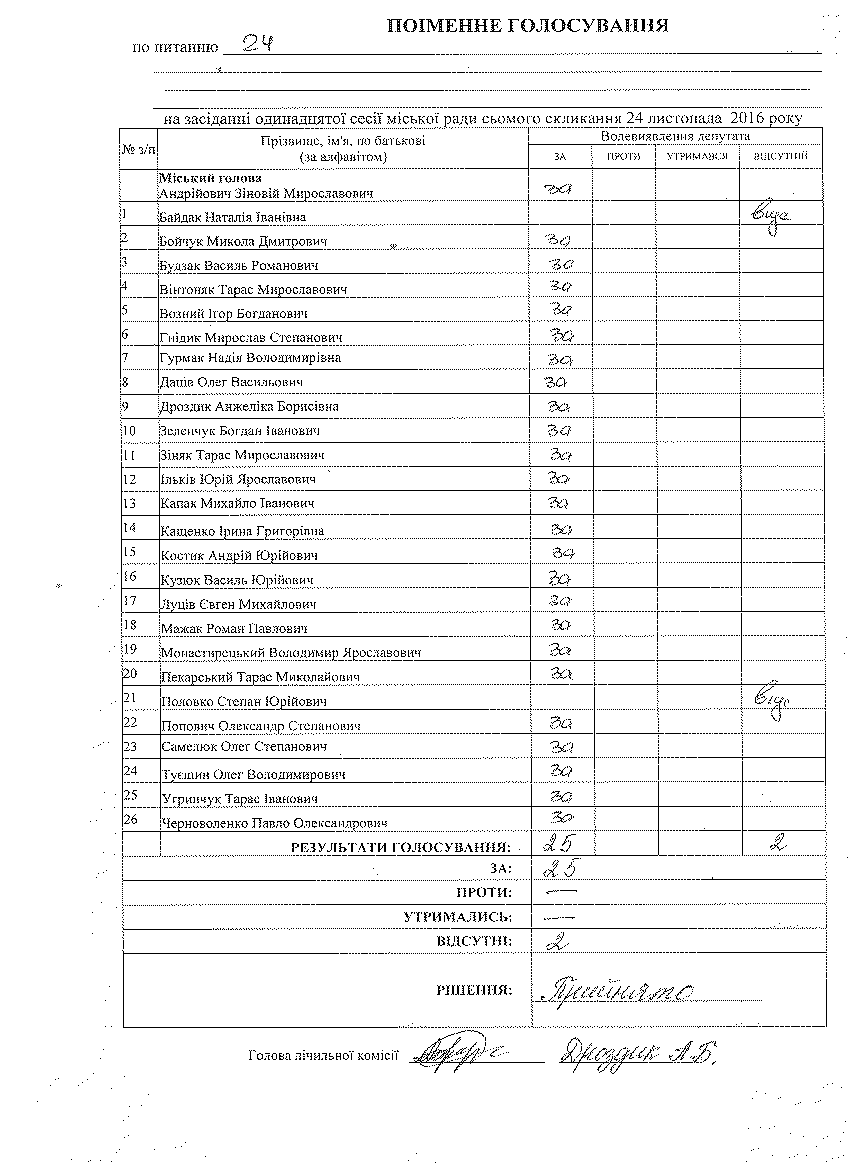 ПОІМЕННЕ ГОЛОСУВАННЯ
по питанню 24
на засіданні одинадцятої сесії міської ради сьомого скликання 24 листопада 2016 року
№ з/п Прізвище, ім'я, по батькові (за алфавітом) Волевиявлення депутата
ЗА ПРОТИ УТРИМАВСЯ ВІДСУТНІЙ
Міський голова
Андрійович Зіновій Мирославович за
1 Байдак Наталія Іванівна відс
2 Бойчук Микола Дмитрович за
3 Будзак Василь Романович за
4 Вінтоняк Тарас Мирославович за
5 Возний Ігор Богданович за
6 Гнідик Мирослав Степанович за
7 Гурмак Надія Володимирівна за
8 Даців Олег Васильович за
9 Дроздик Анжеліка Борисівна за
10 Зеленчук Богдан Іванович за
11 Зіняк Тарас Мирославович за
12 Ільків Юрій Ярославович за
13 Капак Михайло Іванович за
14 Кащенко Ірина Григорівна за
15 Костик Андрій Юрійович за
16 Кузюк Василь Юрійович за
17 Луців Євген Михайлович за
18 Мажак Роман Павлович за
19 Монастирецький Володимир Ярославович за
20 Пекарський Тарас Миколайович за
21 Половко Степан Юрійович відс
22 Попович Олександр Степанович за
23 Самелюк Олег Степанович за
24 Туєшин Олег Володимирович за
25 Угринчук Тарас Іванович за
26 Черноволенко Павло Олександрович за
РЕЗУЛЬТАТИ ГОЛОСУВАННЯ: 25 2
ЗА: 25
ПРОТИ: —
УТРИМАЛИСЬ: —
ВІДСУТНІ: 2
РІШЕННЯ: Прийнято
Голова лічильної комісії Дроздик А.Б.